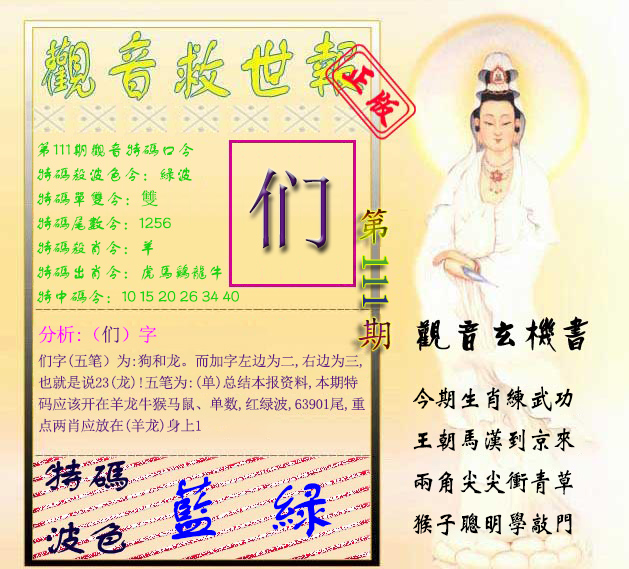 觀音救世報
正版
第111期觀音特碼口令
特碼殺波色令：綠波
特碼單雙令：雙
特碼尾數令：1256
特碼殺肖令：羊
特碼出肖令：虎馬鷄龍牛
特中碼令：10 15 20 26 34 40
们
第111期
分析:（们）字
们字(五笔）为:狗和龙。而加字左边为二,右边为三,
也就是说23(龙)!五笔为:(单)总结本报资料,本期特
码应该开在羊龙牛猴马鼠、单数,红绿波,63901尾,重
点两肖应放在(羊龙)身上1
特碼
波色
藍 綠
觀音玄機書
今期生肖練武功
王朝馬漢到京來
兩角尖尖衝青草
猴子聰明學敲門